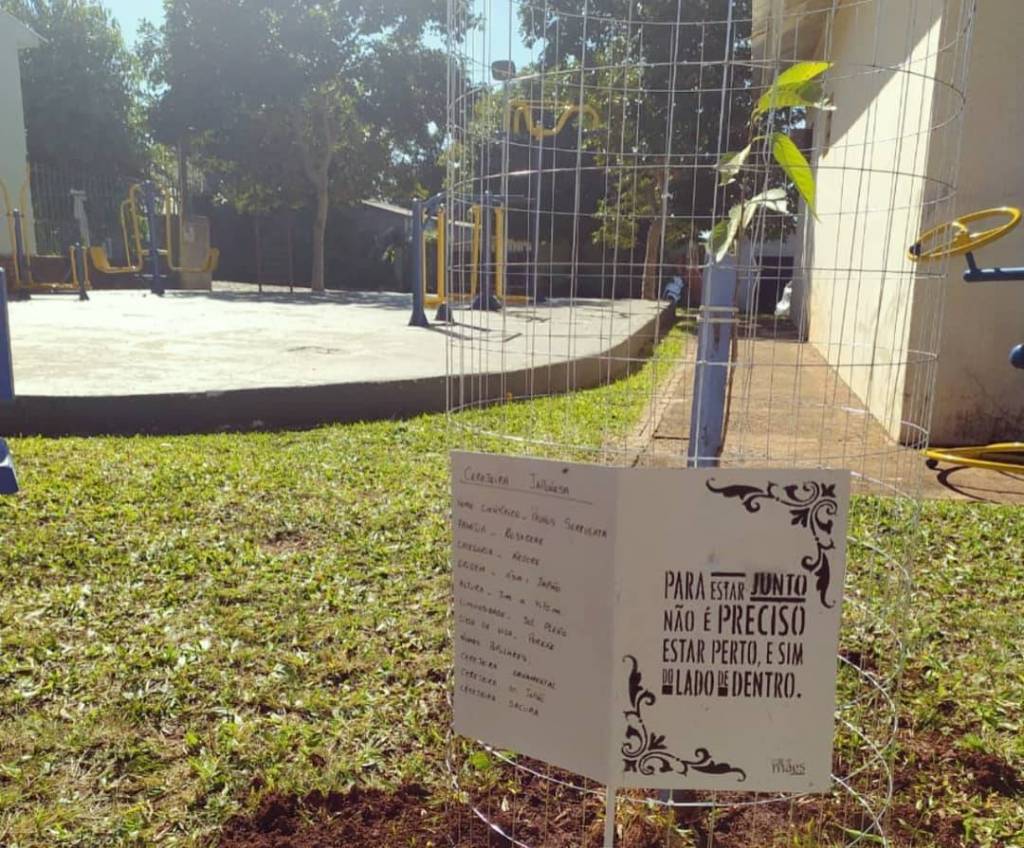 CEREJEIRA INGLESA
NOME CIENTÍFICO - PRUNUS SERRULATA
FAMÍLIA - ROSACEAE
CATEGORIA - ÁRVORE
ORIGEM - ÁSIA, JAPÃO
ALTURA -
LUMINOSIDADE - SOL PLENO
CICLO DE VIDA - PERENE
NOMES POPULARES
CEREJEIRA ORNAMENTAL
CEREJEIRA DO JAPÃO
CEREJEIRA SAKURA
PARA ESTAR JUNTO
NÃO É PRECISO
ESTAR PERTO, E SIM
DO LADO DE DENTRO.
mães